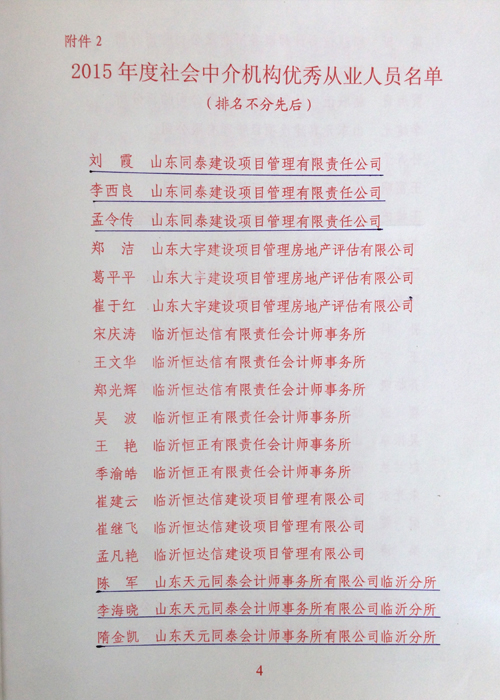 附件2
2015年度社会中介机构优秀从业人员名单
（排名不分先后）
刘 霞 山东同泰建设项目管理有限责任公司
李西良 山东同泰建设项目管理有限责任公司
孟令传 山东同泰建设项目管理有限责任公司
郑 洁 山东大宇建设项目管理房地产评估有限公司
葛平平 山东大宇建设项目管理房地产评估有限公司
崔于红 山东大宇建设项目管理房地产评估有限公司
宋庆涛 临沂恒达信有限责任会计师事务所
王文华 临沂恒达信有限责任会计师事务所
郑光辉 临沂恒达信有限责任会计师事务所
吴 波 临沂恒正有限责任会计师事务所
王 艳 临沂恒正有限责任会计师事务所
季渝皓 临沂恒正有限责任会计师事务所
崔建云 临沂恒达信建设项目管理有限公司
崔继飞 临沂恒达信建设项目管理有限公司
孟凡艳 临沂恒达信建设项目管理有限公司
陈 军 山东天元同泰会计师事务所有限公司临沂分所
李海晓 山东天元同泰会计师事务所有限公司临沂分所
隋金凯 山东天元同泰会计师事务所有限公司临沂分所
4